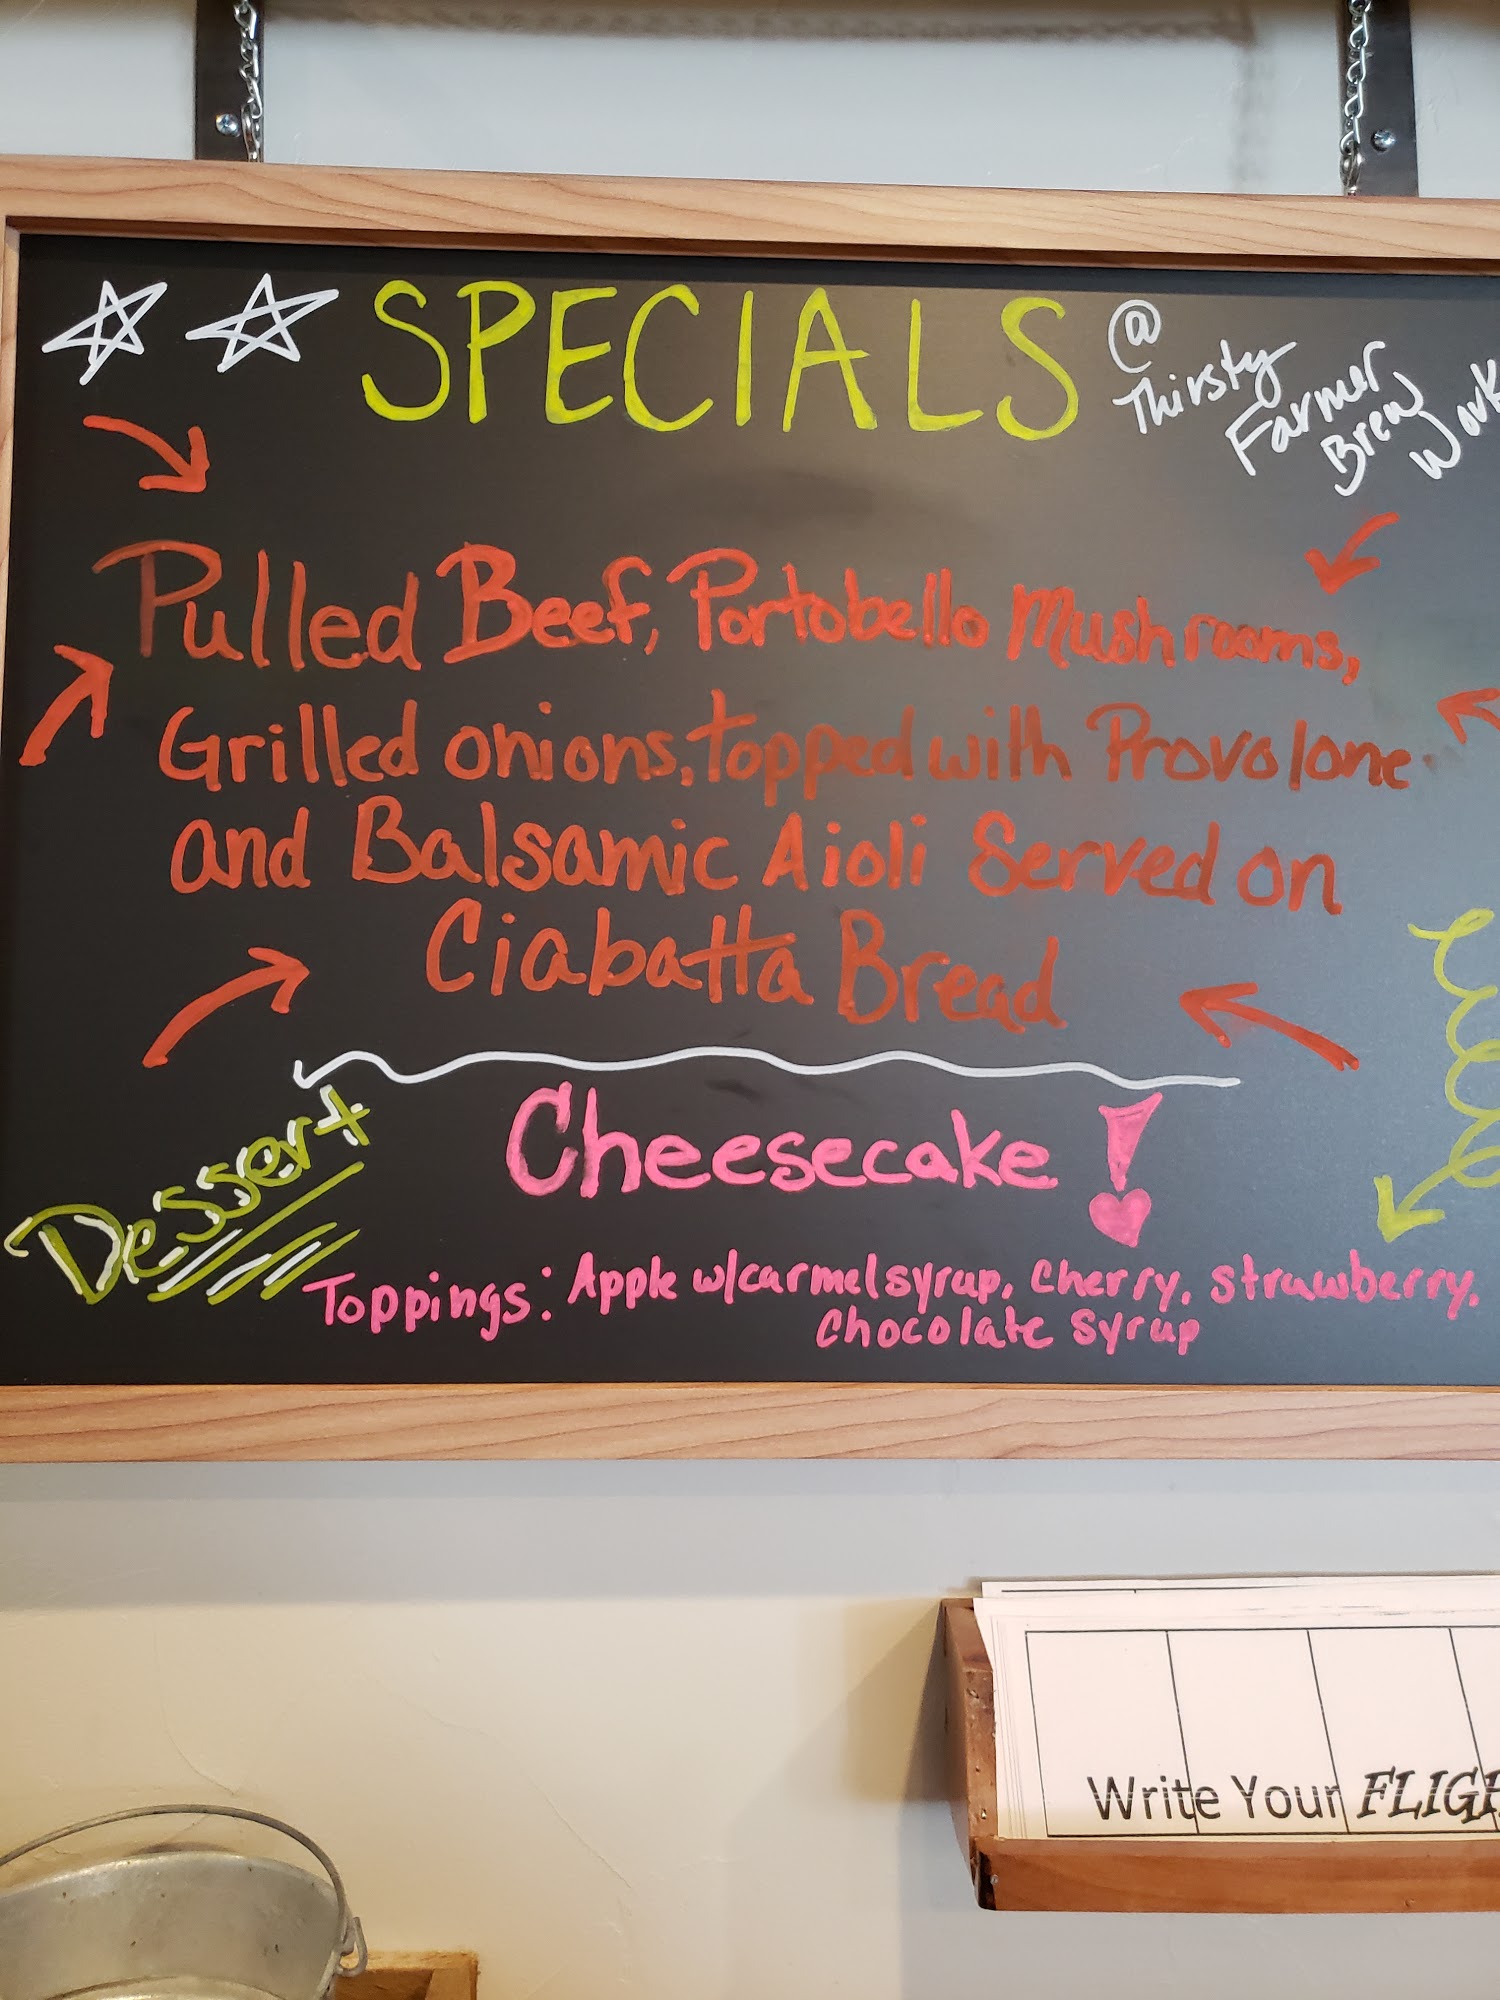 SPECIALS
@
Thirsty
Farmer
Brew
Work
Pulled Beef, Portobello Mushrooms,
Grilled onions, topped with Provolone
and Balsamic Aioli Served on
Ciabatta Bread
Dessert
Cheesecake!
Toppings: Apple w/carmel syrup, Cherry, Strawberry,
Chocolate Syrup
Write Your FLIGH